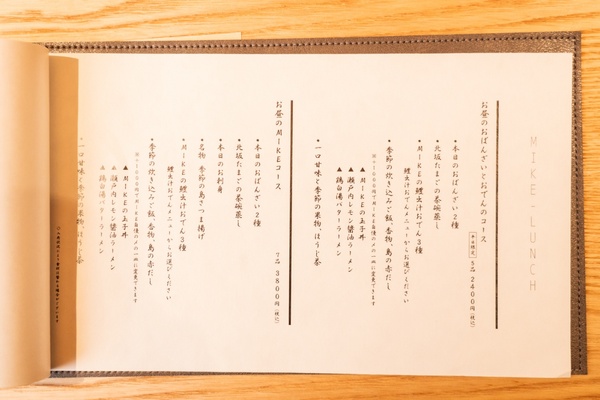 MIKE-LUNCH
お昼のおばんざいとおでんのコース
平日限定 5品 2400円(税込)
・本日のおばんざい2種
・北坂たまごの茶碗蒸し
・MIKEの鯉虫汁おでん3種
鯉虫汁おでんメニューからお選びください
・季節の炊き込みご飯、香物、鳥の赤だし
※+1000円でMIKE自慢の〆の一杯に変更できます
▲MIKEの玉子丼
▲瀬戸内レモン醤油ラーメン
▲鶏白湯バターラーメン
・一口甘味と季節の果物、ほうじ茶
お昼のMIKEコース
7品 3800円(税込)
・本日のおばんざい2種
・北坂たまごの茶碗蒸し
・本日のお刺身
・名物 季節の鳥さつま揚げ
・MIKEの鯉虫汁おでん3種
鯉虫汁おでんメニューからお選びください
・季節の炊き込みご飯、香物、鳥の赤だし
※+1000円でMIKE自慢の〆の一杯に変更できます
▲MIKEの玉子丼
▲瀬戸内レモン醤油ラーメン
▲鶏白湯バターラーメン
・一口甘味と季節の果物、ほうじ茶